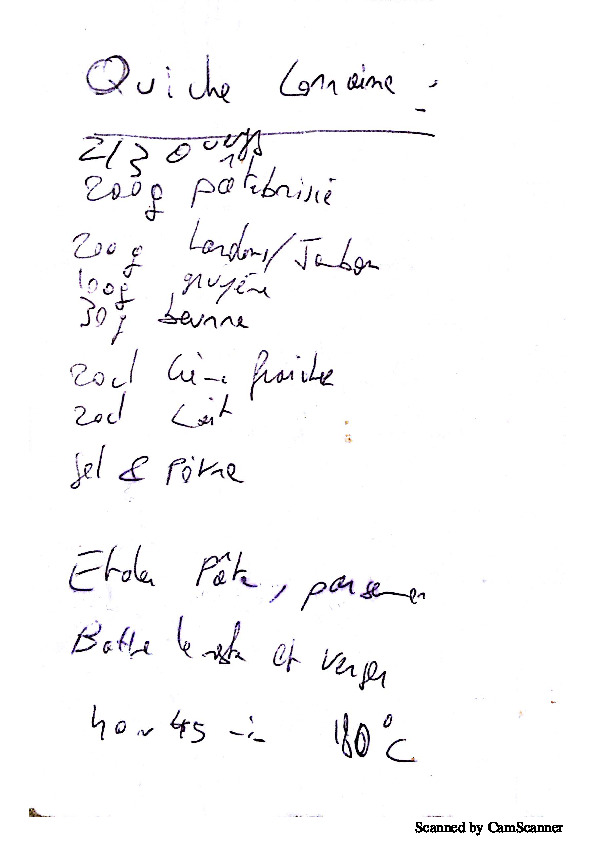 Quiche Lorraine :
2/3 oeufs
200g pâte brisée
200g Lardons/Jambon
100g gruyère
30g beurre
20cl Crème fraiche
20cl Lait
Sel & Poivre
Etaler Pâte, parsemer
Battre le reste et verser
40 ~ 45 min 180°C
Scanned by CamScanner